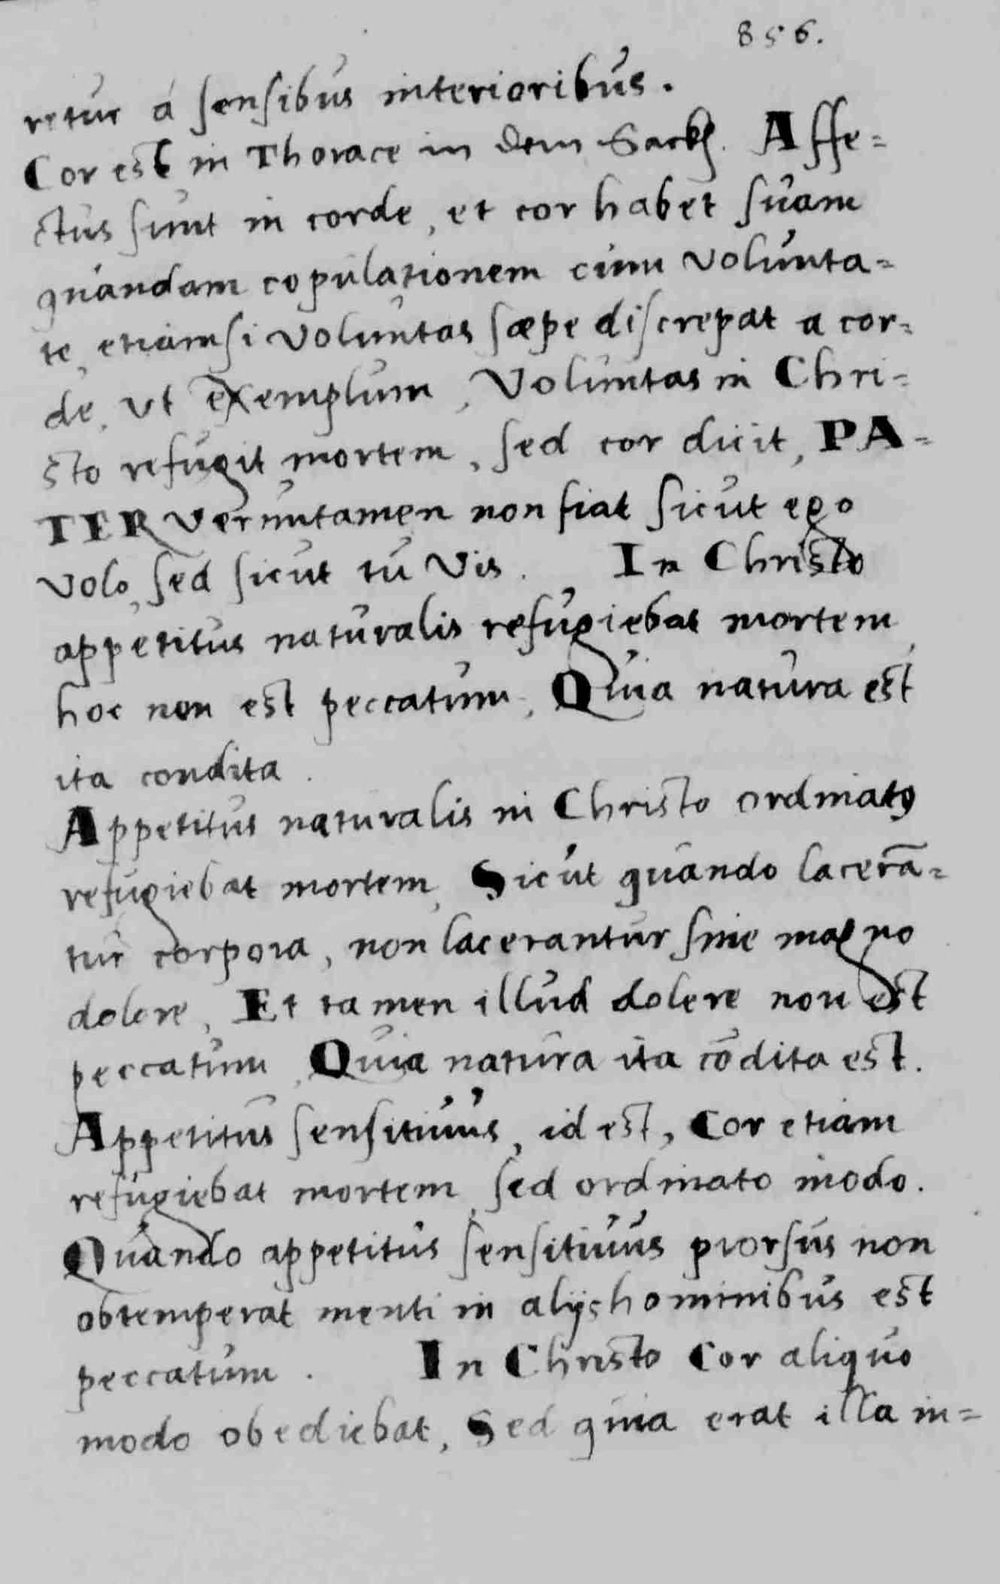 856.
retur á sensibus interioribus.
Cor est in Thorace in dem Sackh. Affe=
ctus sunt in corde, et cor habet suam
quandam copulationem cum volunta=
te, etiamsi voluntas sæpe discrepat a cor=
de, ut exemplum, Voluntas in Chri=
sto refugit mortem, sed cor dicit, PA=
TER Veruntamen non fiat sicut ego
volo, sed sicut tu vis. In Christo
appetitus naturalis refugiebat mortem,
hoc non est peccatum, Quia natura est
ita condita.
Appetitus naturalis in Christo ordinatꝰ
refugiebat mortem, Sicut quando lacerā=
tur corpora, non lacerantur sine magno
dolore, Et tamen illud dolere non est
peccatum, Quia natura ita cōdita est.
Appetitus sensitiuus, id est, Cor etiam
refugiebat mortem, sed ordinato modo.
Quando appetitus sensitiuus prorsus non
obtemperat menti in alijs hominibus est
peccatum. In Christo Cor aliquo
modo obediebat, Sed quia erat illa in=